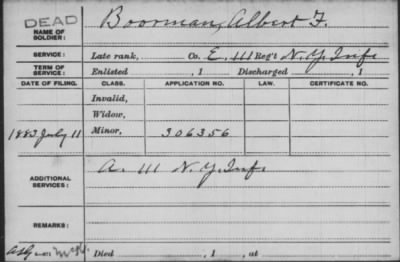 DEAD
NAME OF SOLDIER: Boorman, Albert F.
SERVICE: Late rank, Co. E. 111 Reg't N.Y. Inf.
TERM OF SERVICE: Enlisted , 1 Discharged , 1
DATE OF FILING. CLASS. APPLICATION NO. LAW. CERTIFICATE NO.
Invalid,
Widow,
1883 July 11 Minor, 306356
ADDITIONAL SERVICES: A. 111 N.Y. Inf.
REMARKS:
Died , 1 , at